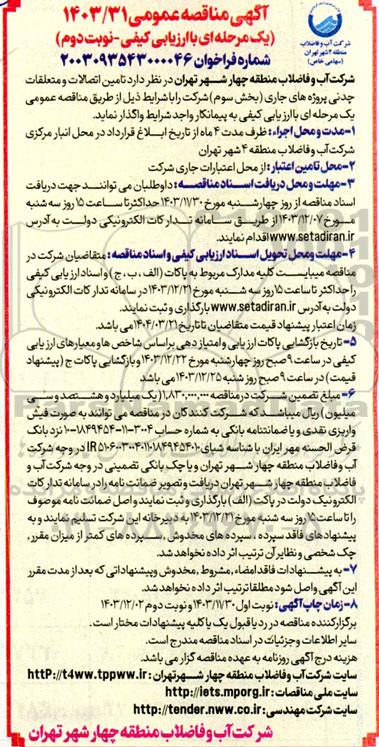 آگهی مناقصه عمومی ۱۴۰۳/۳۱
(یک مرحله ای با ارزیابی کیفی - نوبت دوم)
شماره فراخوان ۲۰۰۳۰۹۳۵۴۳۰۰۰۰۴۶
شرکت آب و فاضلاب
منطقه ۴ شهر تهران
(سهامی خاص)
شرکت آب و فاضلاب منطقه چهار شهر تهران در نظر دارد تامین اتصالات و متعلقات
چدنی پروژه های جاری (بخش سوم) شرکت را با شرایط ذیل از طریق مناقصه عمومی
یک مرحله ای با ارزیابی کیفی به پیمانکار واجد شرایط واگذار نماید.
۱- مدت و محل اجراء: ظرف مدت ۴ ماه از تاریخ ابلاغ قرارداد در محل انبار مرکزی
شرکت آب و فاضلاب منطقه ۴ شهر تهران
۲- محل تامین اعتبار: از محل اعتبارات جاری شرکت
۳- مهلت و محل دریافت اسناد مناقصه: داوطلبان می توانند جهت دریافت
اسناد مناقصه از روز چهارشنبه مورخ ۱۴۰۳/۱۱/۳۰ حداکثر تا ساعت ۱۵ روز سه شنبه
مورخ ۱۴۰۳/۱۲/۰۷ از طریق سامانه تدارکات الکترونیکی دولت به آدرس
www.setadiran.ir اقدام نمایند.
۴- مهلت و محل تحویل اسناد ارزیابی کیفی و اسناد مناقصه: متقاضیان شرکت در
مناقصه میبایست کلیه مدارک مربوط به پاکات (الف، ب، ج) و اسناد ارزیابی کیفی
را حداکثر تا ساعت ۱۵ روز سه شنبه مورخ ۱۴۰۳/۱۲/۲۱ در سامانه تدارکات الکترونیکی
دولت به آدرس www.setadiran.ir بارگذاری و ثبت نمایند.
زمان اعتبار پیشنهاد قیمت متقاضیان تا تاریخ ۱۴۰۴/۰۳/۲۱ می باشد.
۵- تاریخ بازگشایی پاکات ارزیابی و امتیازدهی براساس شاخص ها و معیارهای ارزیابی
کیفی در ساعت ۹ صبح روز چهارشنبه مورخ ۱۴۰۳/۱۲/۲۲ و بازگشایی پاکات ج (پیشنهاد
قیمت) در ساعت ۹ صبح روز شنبه ۱۴۰۳/۱۲/۲۵ می باشد
۶- مبلغ تضمین شرکت در مناقصه ۱,۸۳۰,۰۰۰,۰۰۰ (یک میلیارد و هشتصد و سی
میلیون) ریال میباشد که شرکت کنندگان در مناقصه می توانند به صورت فیش
واریزی نقدی و یا ضمانتنامه بانکی به شماره حساب نزد بانک
قرض الحسنه مهر ایران با شناسه شبای در وجه شرکت
آب و فاضلاب منطقه چهار شهر تهران و یا چک بانکی تضمینی در وجه شرکت آب و
فاضلاب منطقه چهار شهر تهران دریافت و تصویر ضمانت نامه را در سامانه تدارکات
الکترونیک دولت در پاکت (الف) بارگذاری و ثبت نمایند و اصل ضمانت نامه موصوف
را تا ساعت ۱۵ روز سه شنبه مورخ ۱۴۰۳/۱۲/۲۱ به دبیرخانه این شرکت تسلیم نمایند و به
پیشنهادهای فاقد سپرده، سپرده های مخدوش، سپرده های کمتر از میزان مقرر،
چک شخصی و نظایر آن ترتیب اثر داده نخواهد شد.
۷- به پیشنهادات فاقد امضاء، مشروط، مخدوش و پیشنهاداتی که بعد از مدت مقرر
این آگهی واصل شود مطلقا ترتیب اثر داده نخواهد شد.
۸- زمان چاپ آگهی: نوبت اول ۱۴۰۳/۱۱/۳۰ و نوبت دوم ۱۴۰۳/۱۲/۰۲
برگزارکننده مناقصه در رد یا قبول یک یا کلیه پیشنهادات مختار است.
سایر اطلاعات و جزئیات در اسناد مناقصه مندرج است.
هزینه درج آگهی روزنامه به عهده مناقصه گزار می باشد.
سایت شرکت آب و فاضلاب منطقه چهار شهر تهران: httP://t4ww.tppww.ir
سایت ملی مناقصات: http://iets.mporg.ir
سایت شرکت مهندسی: http://tender.nww.co.ir
شرکت آب و فاضلاب منطقه چهار شهر تهران